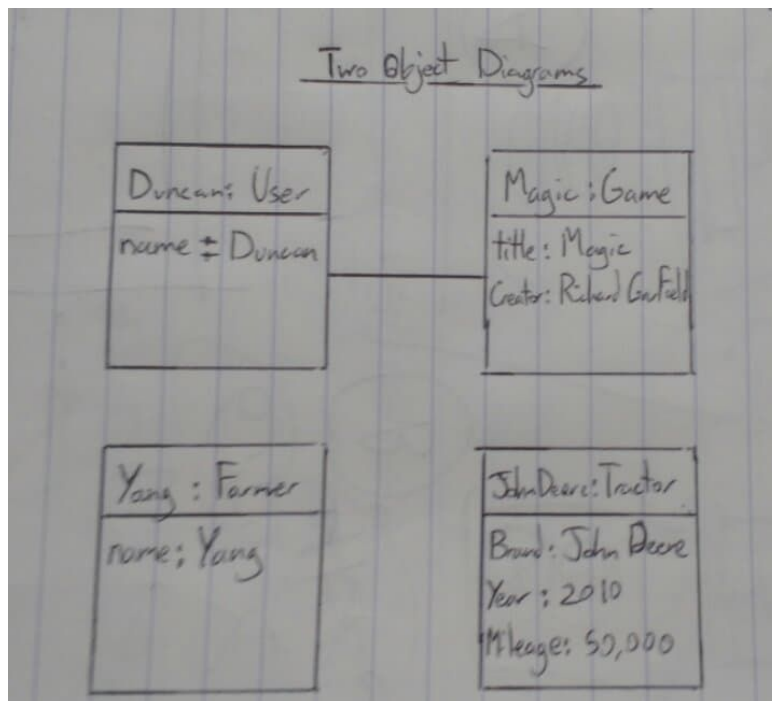 Two Object Diagrams
Duncan: User
name = Duncan
Magic: Game
title: Magic
Creator: Richard Garfield
Yang: Farmer
name: Yang
John Deere: Tractor
Brand: John Deere
Year: 2010
Mileage: 50,000